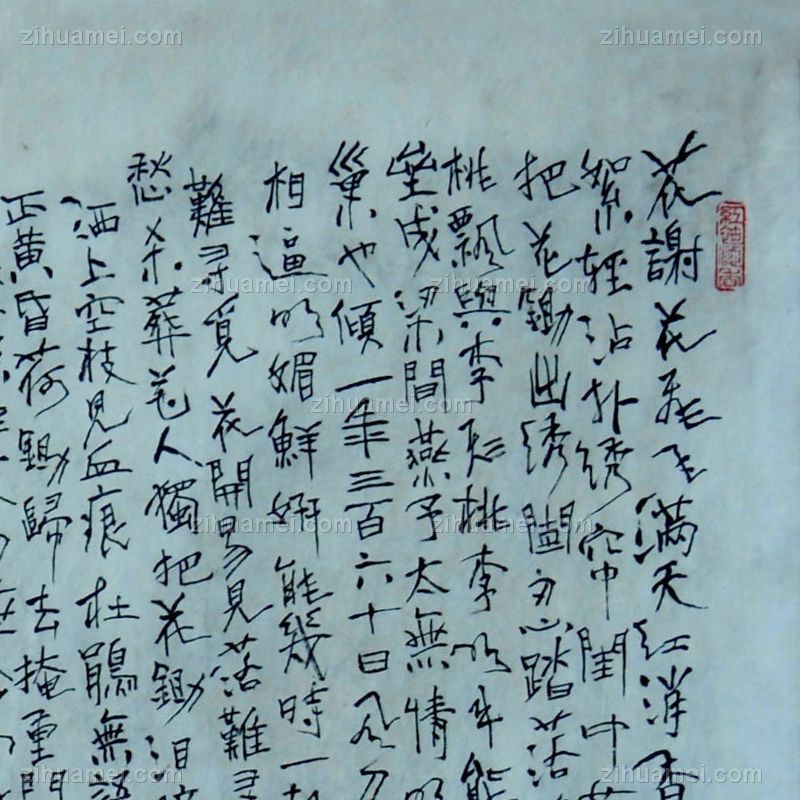 花謝花飛飛滿天紅消香
絮輕沾扑绣帘中閨中
把花鋤出绣闺忍踏落
桃飄與李飛桃李明年能
壘成梁間燕子太無情明
巢也傾一年三百六十日風刀
相逼明媚鮮妍能幾時一
難尋覓花開易見落難尋
愁杀葬花人獨把花鋤泪
洒上空枝見血痕杜鵑無語
正黄昏荷鋤歸去掩重門
zihuamei.com
zihuamei.com
zihuamei.com
zihuamei.com
zihuamei.com
zihuamei.com
zihuamei.com
zihuamei.com
zihuamei.com
zihuamei.com
zihuamei.com
zihuamei.com
zihuamei.com